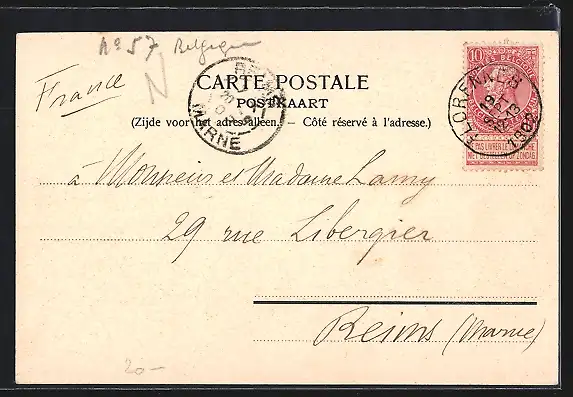 Nº 57 Belgique
France
CARTE POSTALE
POSTKAART
(Zijde voor het adres alléen. – Côté réservé à l'adresse.)
REIMS
MARNE
10
FLORENNES
1902
NE PAS LIVRER LE DIMANCHE
NIET BESTELLEN OP ZONDAG
à Monsieur et Madame Lamy
29 rue Libergier
Reims (Marne)
20-